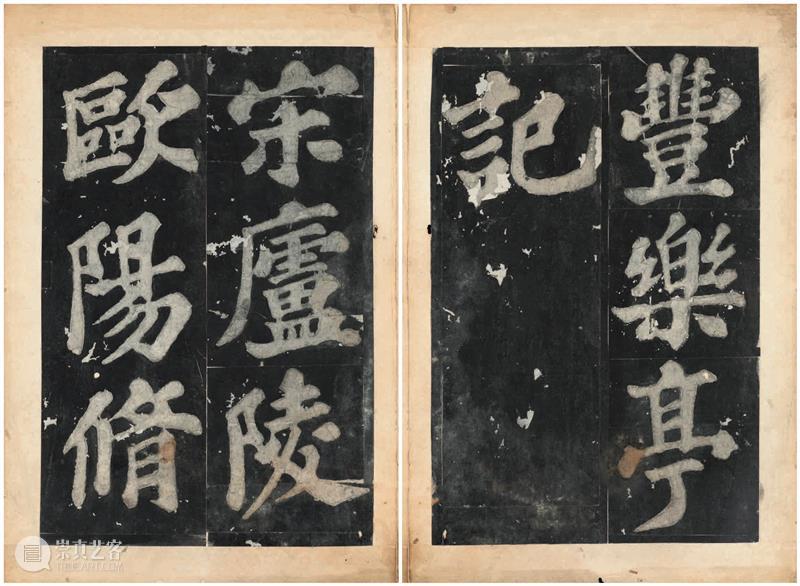 豐樂亭
記
宋廬陵
歐陽脩
崇真艺客
WWW.TRUEART.COM